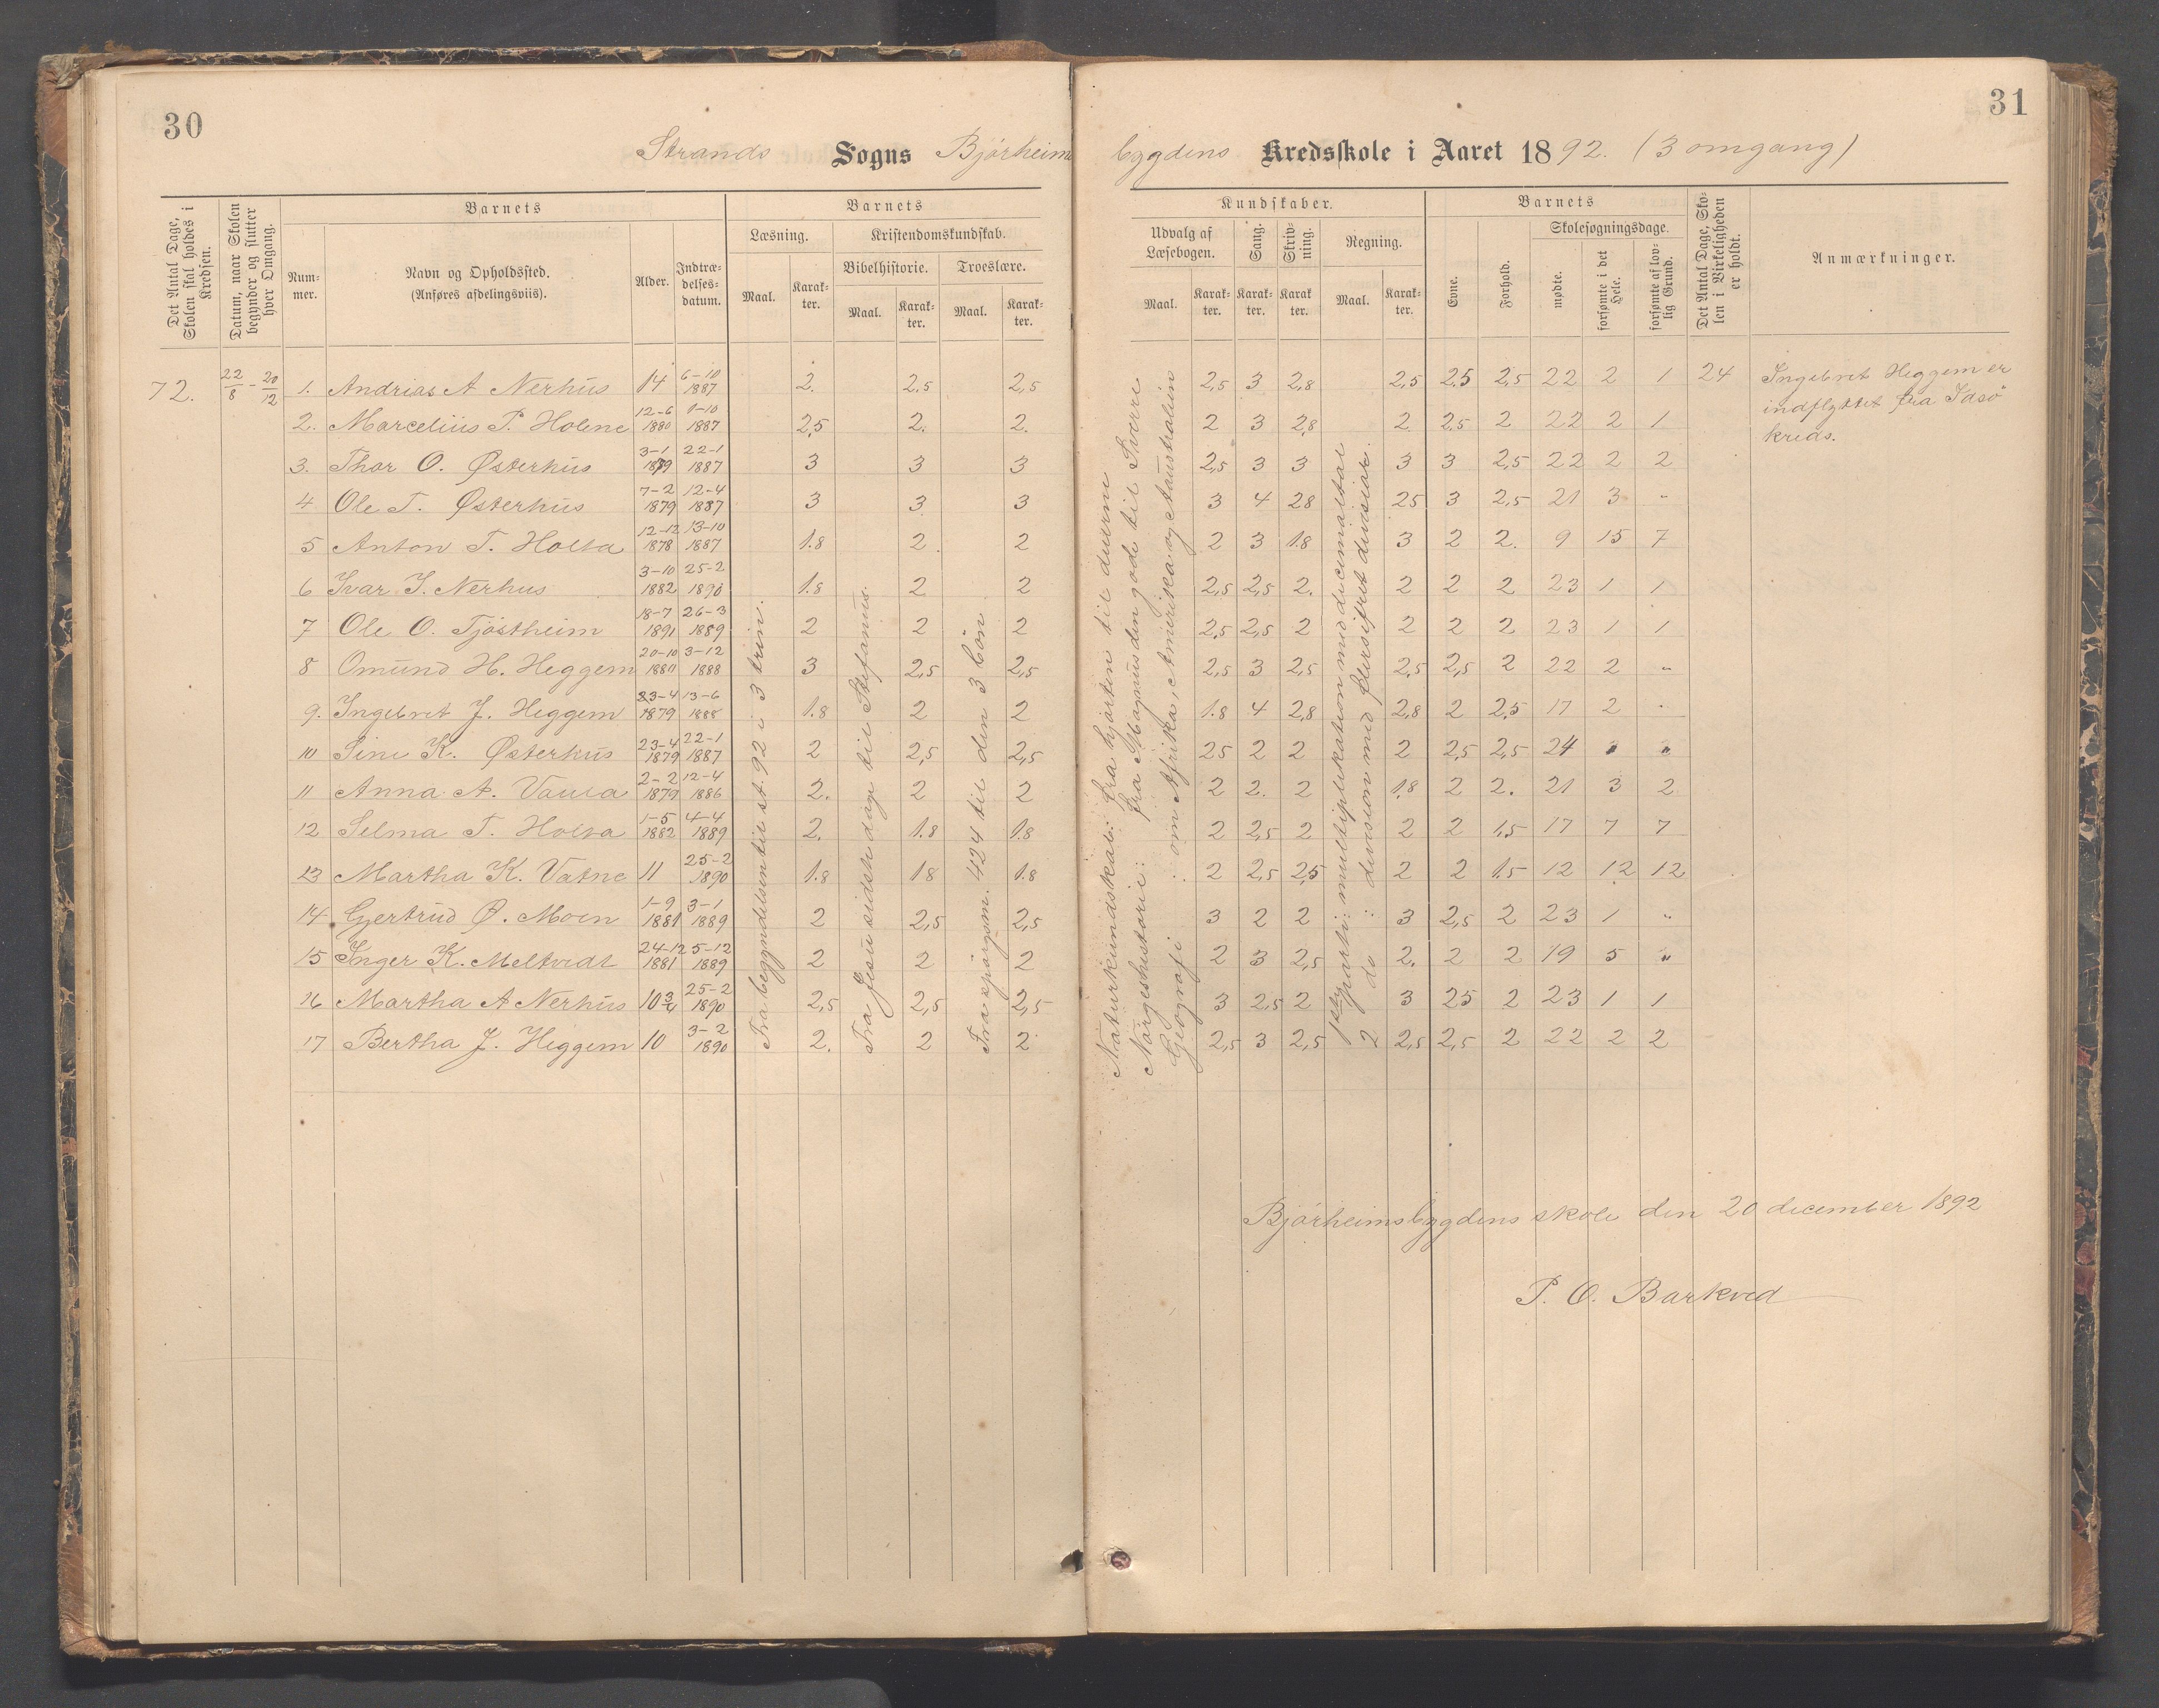 30
31
Strands Sogns Bjørheims
bygdens Kredsskole i Aaret 1892. (3 omgang)
Det Antal Dage, Skolen skal holdes i Kredsen.
Datum, naar Skolen begynder og slutter hver Omgang.
Barnets
Barnets
Kundskaber.
Barnets
Det Antal Dage, Skolen i Virkeligheden er holdt.
Anmærkninger.
Nummer.
Navn og Opholdssted.
(Anføres afdelingsviis).
Alder.
Indtrædelsesdatum.
Læsning.
Kristendomskundskab.
Bibelhistorie.
Troeslære.
Maal.
Karakter.
Maal.
Karakter.
Maal.
Karakter.
Udvalg af Læsebogen.
Sang.
Skrivning.
Regning.
Maal.
Karakter.
Karakter.
Karakter.
Maal.
Karakter.
Evne.
Forhold.
Skolesøgningsdage.
mødte.
forsømte i det Hele.
forsømte af lovlig Grund.
72. 22/8 - 20/12 1. Andrias A Nerhus 14 6-10 1887 2. 2.5 2,5 2,5 3 2,8 2,5 2.5 2,5 22 2 1 24
2. Marcelius P. Holene 12-6 1880 1-10 1887 2,5 2. 2. 2 3 2,8 2 2.5 2 22 2 1
3. Thor O. Østerhus 3-1 1879 22-1 1887 3 3 3 2,5 3 3 3 3 2,5 22 2 2
4 Ole T. Østerhus 7-2 1879 12-4 1887 3 3 3 3 4 28 25 3 2,5 21 3 "
5 Anton T. Holta 12-12 1878 13-10 1887 1.8 2. 2 2 3 1.8 3 2 2. 9 15 7
6 Ivar I. Nerhus 3-10 1882 25-2 1890 1.8 2 2 2,5 2,5 2. 2 2 2 23 1 1
7 Ole O. Tjøstheim 18-7 1891 26-3 1889 2 2 2 2,5 2,5 2 2 2 2 23 1 1
8 Omund H. Heggem 20-10 1880 3-12 1888 3 2,5 2,5 2,5 3 2,5 2,5 2,5 2 22 2 "
9. Ingebret J. Heggem 23-4 1879 13-6 1888 1.8 2 2 1.8 4 2,8 2,8 2 2,5 17 2 "
10 Sine K. Østerhus 23-4 1879 22-1 1887 2 2,5 2,5 25 2 2 2 2,5 2,5 24 " "
11 Anna A. Vaula 2-2 1879 12-4 1886 2. 2 2 2 2. 2 1,8 2 2. 21 3 2
12 Selma T. Holta 1-5 1882 4-4 1889 2. 1.8 1.8 2 2,5 2 2 2 1,5 17 7 7
13 Martha K. Vatne 11 25-2 1890 1.8 18 1.8 2 2,5 25 2 2 1.5 12 12 12
14 Gjertrud Ø. Moen 1-9 1881 3-1 1889 2 2,5 2,5 3 2 2 3 2,5 2 23 1 "
15 Inger K. Meltvedt 24-12 1881 5-12 1889 2 2 2 2 3 2,5 2. 2 2 19 5 "
16 Martha A Nerhus 10 3/4 25-2 1890 2,5 2,5 2,5 3 2,5 2 3 25 2 23 1 1
17 Bertha J. Heggem 10 3-2 1890 2. 2 2 2,5 3 2,5 2 2,5 2,5 2 22 2 2
Fra begyndelsen til st. 92 i 3 trin.
Fra Jesu sidste dage til Stefanus.
Fra spørgsm. 424 til den 3 bøn
Naturkundskab: fra hjorten til duerne
Norgeshistorie: fra Magnus den gode til Sverre
Geografi: om Afrika, Amerika og Australien
1ste parti: multiplikation med decimaltal
2 do : division med flersifret divisior.
Ingebret Heggem er
indflyttet fra Idsø
kreds.
Bjørheimsbygdens skole den 20 december 1892
P. O. Barkved